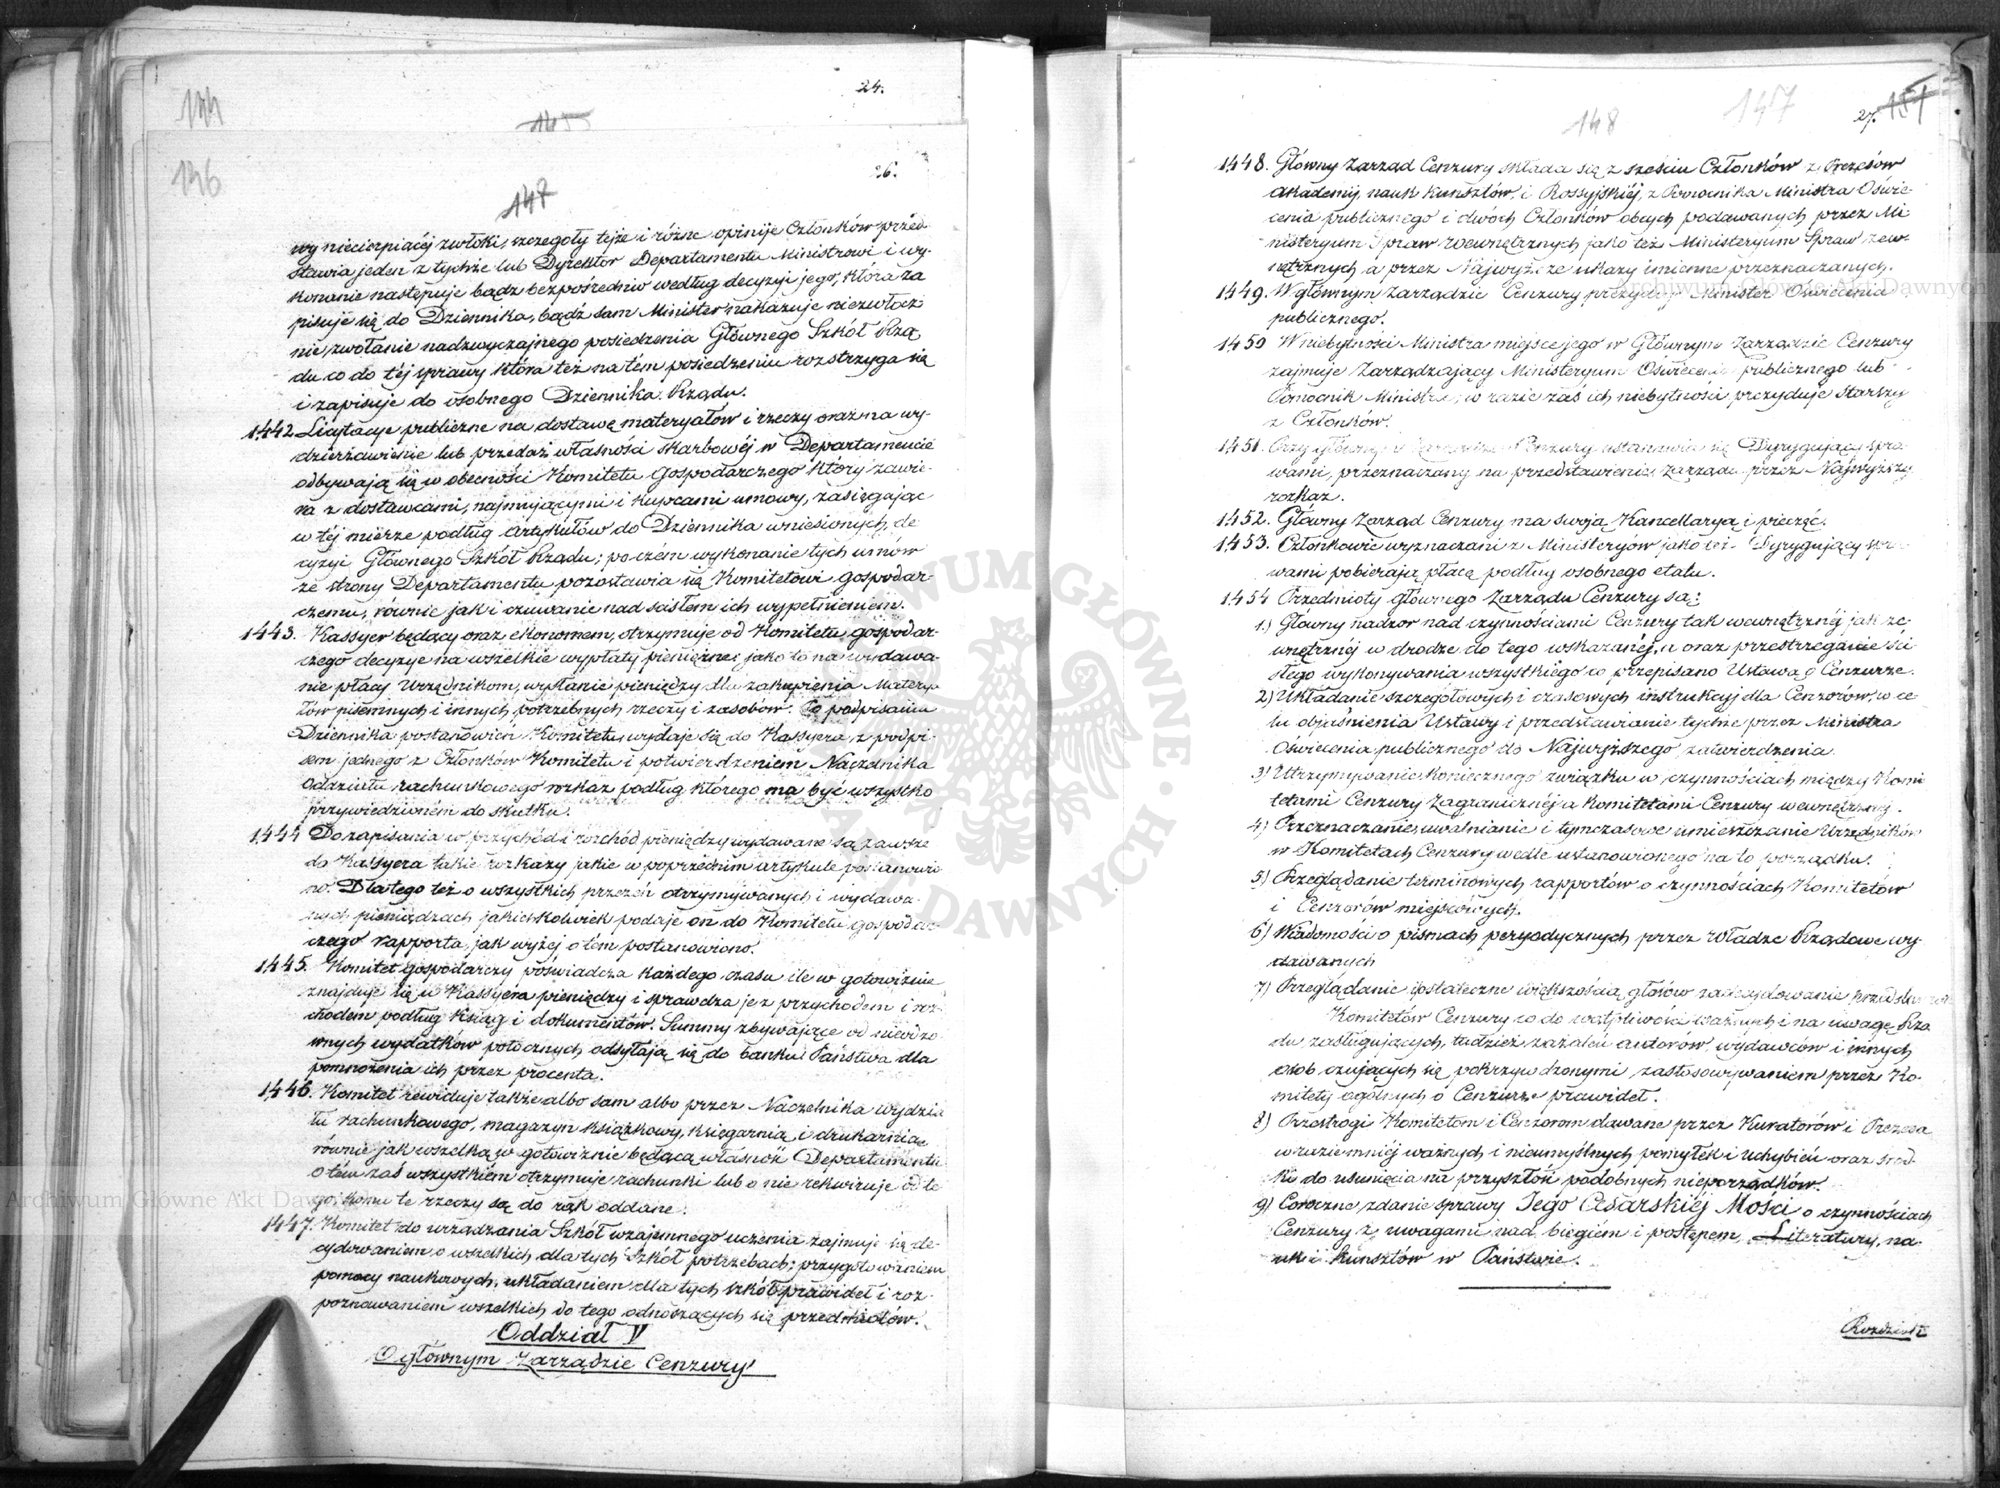 24.
144
1455
26.
146
147
wy niecierpiącéj zwłoki, szczegóły tejże i różne opinije Członków przed-
stawia jeden z tychże lub Dyrektor Departamentu Ministrowi i wy-
konanie następuje bądz bezpośrednio według decyzyi jego, która za
pisuje się do Dziennika, bądź sam Minister nakazuje niezwłocz
nie zwołanie nadzwyczajnego posiedzenia Głównego Szkół Rzą
du co do téj sprawy która też na tém posiedzeniu rozstrzyga się
i zapisuje do osobnego Dziennika Rządu.
1442. Licytacye publiczne na dostawę materyałów i rzeczy oraz na wy-
dzierżawienie lub przedaż własności skarbowéj w Departamencie
odbywają się w obecności Komitetu Gospodarczego który zawie-
ra z dostawcami, najmującymi i kupcami umowy, zasięgając
w téj mierze podług artykułów do Dziennika wniesionych, de
cyzyi Głównego Szkół Rządu; poczém wykonanie tych umów
ze strony Departamentu pozostawia się Komitetowi gospodar-
czemu, równie jak i czuwanie nad scisłem ich wypełnieniem.
1443. Kassyer będący oraz ekonomem, otrzymuje od Komitetu gospodar-
czego decyzye na wszelkie wypłaty pieniężne; jako to na wydawa-
nie płacy Urzędnikom, wysłanie pieniędzy dla zakupienia Materya
łów pismennych i innych potrzebnych rzeczy i zasobów. Po podpisaniu
Dziennika postanowień Komitetu, wydaje się do Kassyera, z podpi-
sem jednego z Członków Komitetu i potwierdzeniem Naczelnika
Oddziału rachunkowego rozkaz podług którego ma być wszystko
przywiedzioném do skutku.
1444 Do zapisania w przychód i rozchód pieniędzy wydawane są zawsze
do Kassyera takie rozkazy jakie w poprzednim artykule postanowio
no. Dlatego też o wszystkich przezeń otrzymywanych i wydawa-
nych pieniądzach jakichkolwiek podaje on do Komitetu gospodar-
czego rapporta, jak wyżéj o tém postanowiono.
1445. Komitet gospodarczy poświadcza każdego czasu ile w gotowiźnie
znajduje się u Kassyera pieniędzy i sprawdza je z przychodem i roz-
chodem podług ksiąg i dokumentów. Summy zbywające od niewzo
wnych wydatków potocznych odsyłają się do banku Państwa dla
pomnożenia ich przez procenta.
1446. Komitet rewiduje także albo sam albo przez Naczelnika wydzia
łu rachunkowego, magazyn książkowy, księgarnią i drukarnią
równie jak wszelką w gotowiznie będącą własność Departamentu
o tém zaś wszystkiém otrzymuje rachunki lub o nie rekwiruje od te
go, komu te rzeczy są do rąk oddane.
1447. Komitet do urządzania Szkół wzajemnego uczenia zajmuje się de-
cydowaniem o wszelkich dla tych Szkół potrzebach; przygotowaniem
pomocy naukowych, układaniem dla tych szkół prawideł i roz-
poznawaniem wszelkich do tego odnoszących się przedmiotów.
Oddział V
O głównym Zarządzie Cenzury
148
147
27.
151
1448. Główny Zarząd Cenzury składa się z sześciu Członków z Prezesów
Akademij nauk kunsztów, i Rossyjskiéj, z Pomocnika Ministra Oświe-
cenia publicznego i dwóch Członków obcych podawanych przez Mi
nisteryum Spraw wewnętrznych jako też Ministeryum Spraw zew-
nętrznych a przez Najwyższe ukazy imienne przeznaczanych.
1449. W głównym Zarządzie Cenzury prezyduje Minister Oświecenia
publicznego.
1450 W niebytności Ministra miejsce jego w Głównym Zarządzie Cenzury
zajmuje Zarządzający Ministeryum Oświecenia publicznego lub
Pomocnik Ministra; w razie zaś ich niebytności prezyduje starszy
z Członków.
1451. Przy głównym Zarządzie Cenzury ustanowia się Dyrygujący spra-
wami, przeznaczany na przedstawienie Zarządu przez Najwyższy
rozkaz.
1452. Główny Zarząd Cenzury ma swoją Kancellaryą i pieczęć.
1453. Członkowie wyznaczani z Ministeryów jako też Dyrygujący spra
wami pobierają płacę podług osobnego etatu.
1454 Przedmioty głównego Zarządu Cenzury są:
1.) Główny nadzor nad czynnościami Cenzury tak wewnętrznéj jak ze-
wnętrznéj w drodze do tego wskazanéj, a oraz przestrzeganie ści
słego wykonywania wszystkiego co przepisano Ustawą o Cenzurze.
2) Układanie szczegółowych i czasowych instrukcyj dla Cenzorów, w ce
lu objaśnienia Ustawy i przedstawianie tychże przez Ministra
Oświecenia publicznego do Najwyższego zatwierdzenia
3) Utrzymywanie koniecznego związku w czynnościach między Komi
tetami Cenzury Zagranicznéj a Komitetami Cenzury wewnętrznéj.
4) Przeznaczanie, uwalnianie i tymczasowe umieszczanie Urzędników
w Komitetach Cenzury wedle ustanowionego na to porządku.
5) Przeglądanie terminowych rapportów o czynnościach Komitetów
i Cenzorów miejscowych.
6) Wiadomości o pismach peryodycznych przez Władze Rządowe wy-
dawanych
7) Przeglądanie i ostateczne większością głosów zadecydowanie przedstawień
Komitetów Cenzury co do wątpliwości ważnych i na uwagę Rzą
du zasługujących, tudzież zażaleń autorów, wydawców i innych
osób czujących się pokrzywdzonymi zastosowywaniem przez Ko-
mitety ogólnych o Cenzurze prawideł.
8) Przestrogi Komitetom i Cenzorom dawane przez Kuratorów i Prezesa
w razie mniéj ważnych i nieumyślnych pomyłek i uchybień oraz środ-
ki do usunięcia na przyszłość podobnych nieporządków.
9) Coroczne zdanie sprawy Jego Cesarskiéj Mości o czynnościach
Cenzury z uwagami nad biegiem i postępem Literatury, na-
uk i kunsztów w Państwie.
Rozdział
ARCHIWUM GŁÓWNE AKT DAWNYCH
Archiwum Główne Akt Dawnych
Archiwum Główne Akt Dawnych